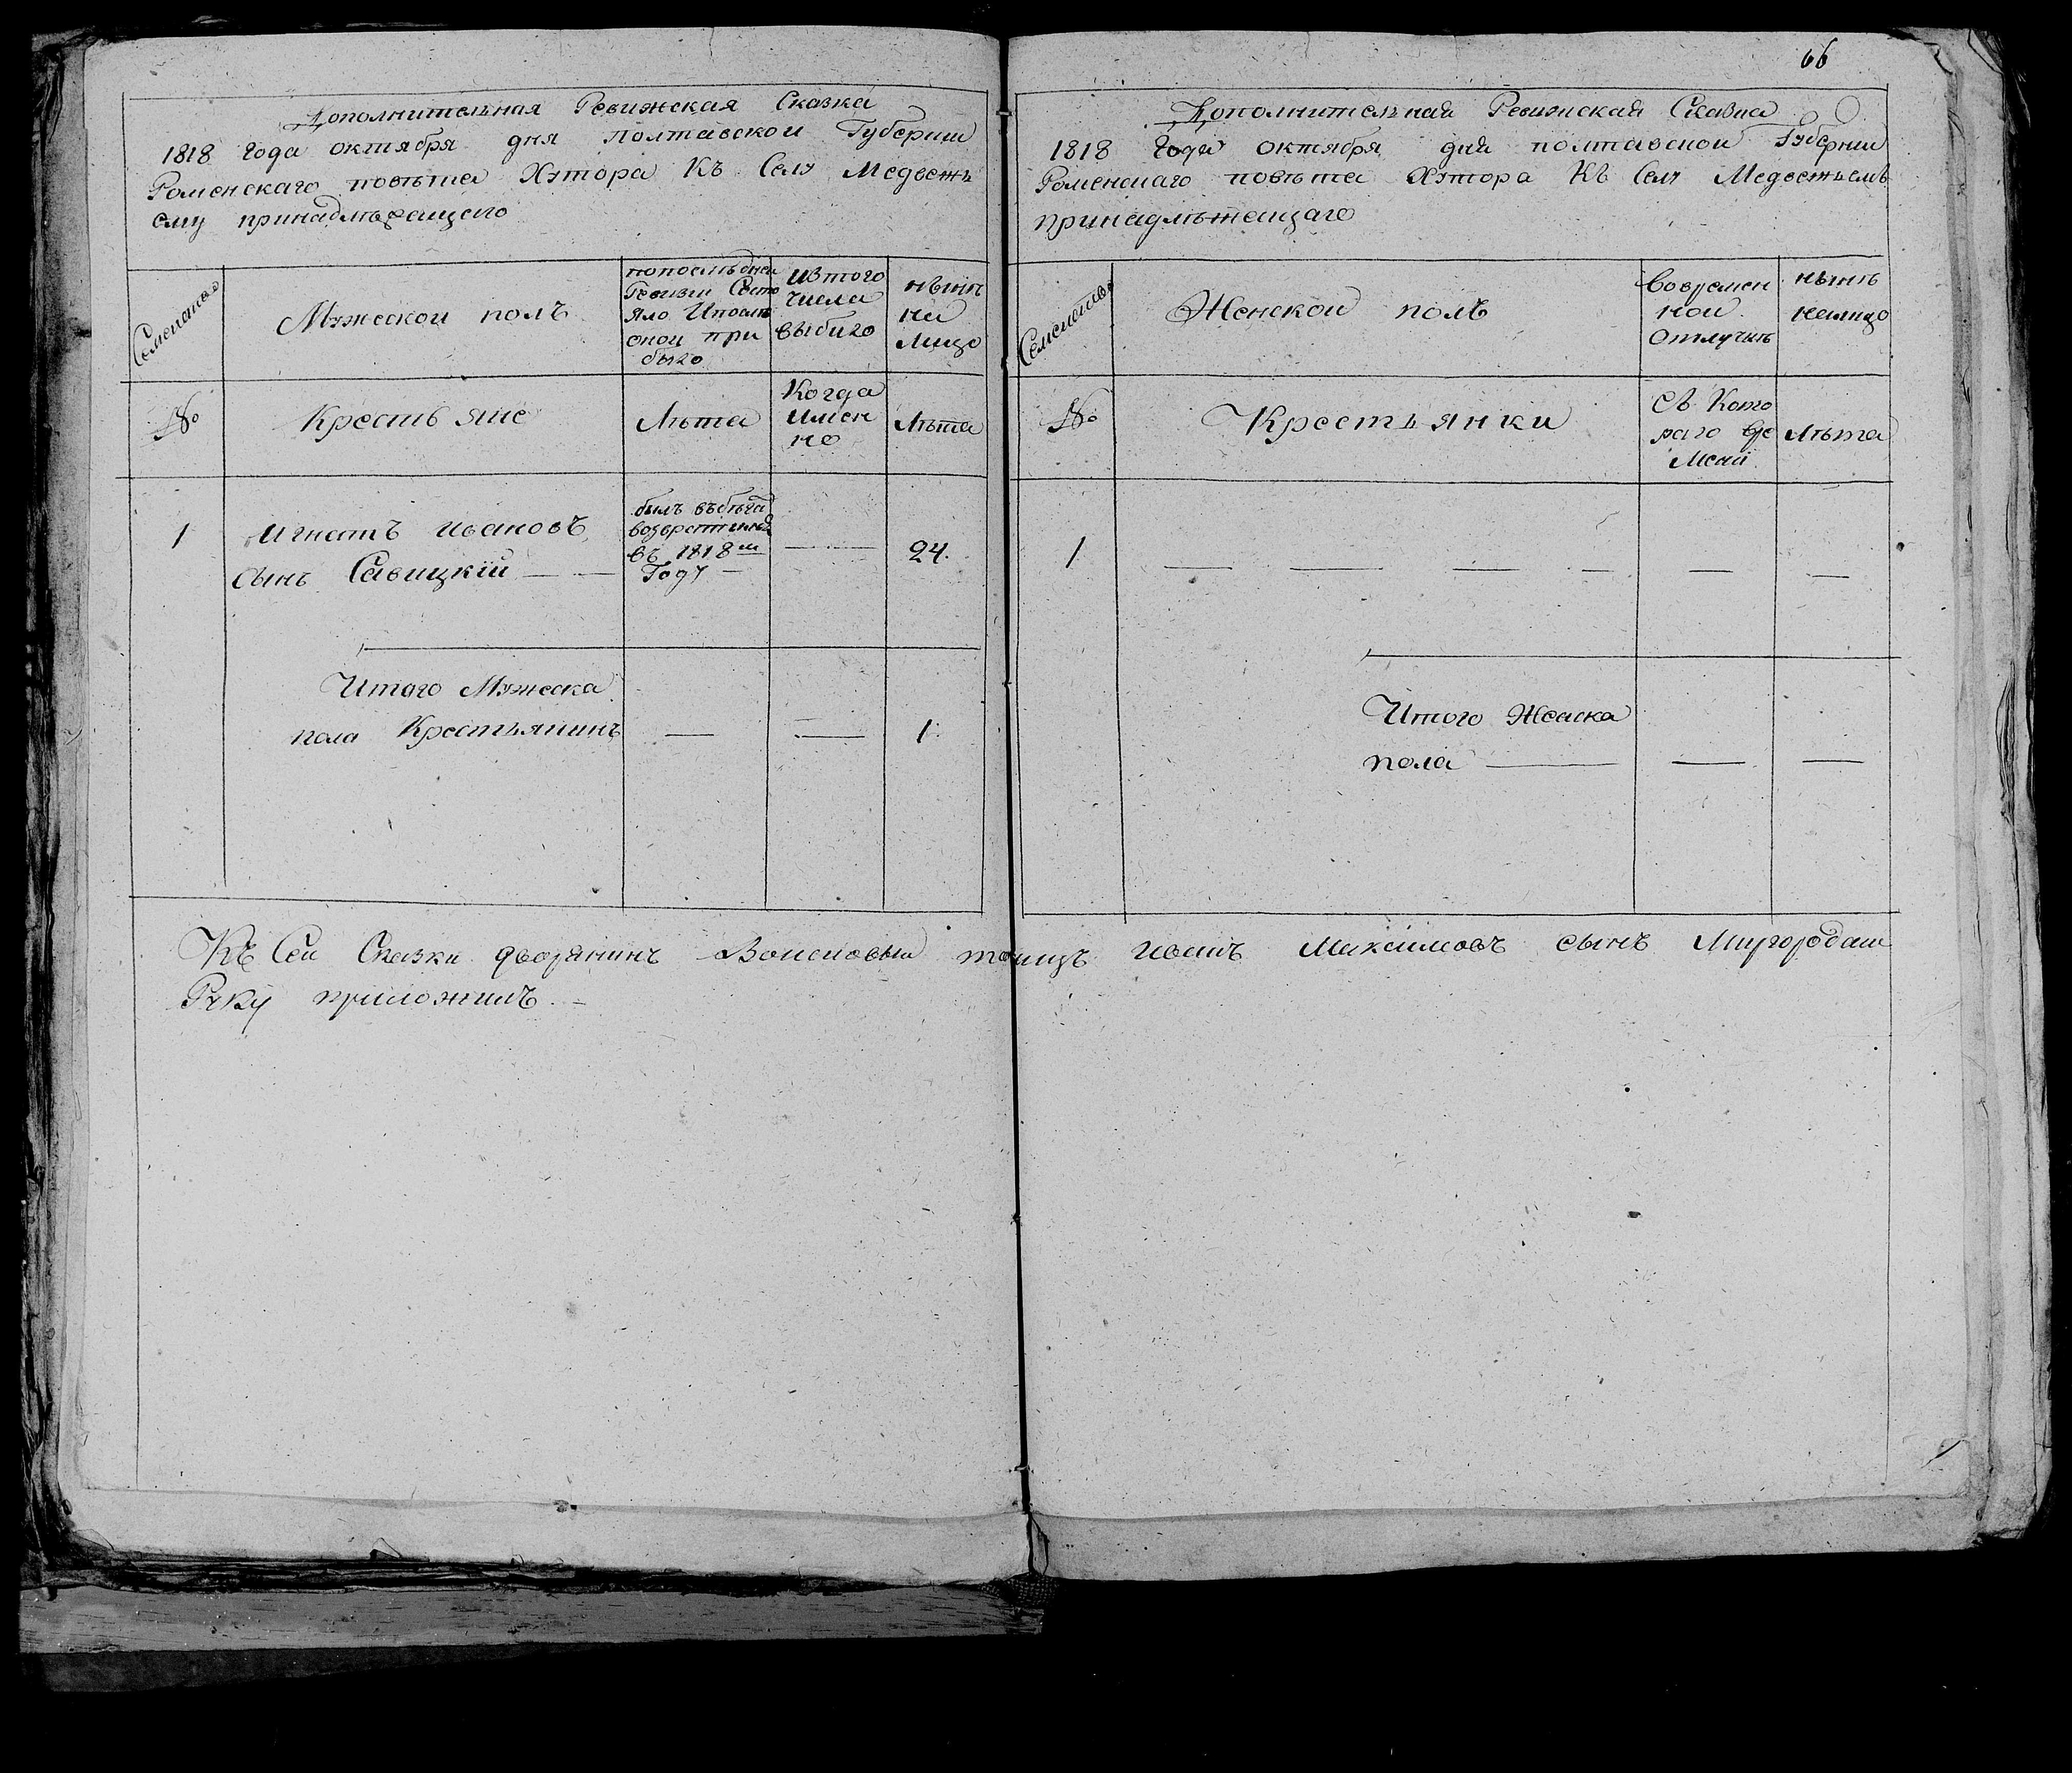 66
Дополнительная Ревижская Сказка
1818 года октября дня Полтавской Губернии
Роменскаго повѣта Хутора Къ Селу Медвежь
ему принадлѣжащаго
Семейства
Мужеской полъ
попослѣдней
Ревизии Состо
яло Ипослѣ
оной при
было
Изтого
числа
выбило
нынѣ
на
лицо
№
Крестьяне
Лѣта
Когда
Имен
но
Лѣта
1
Игнатъ Ивановъ
сынъ Савицкій
былъ вбѣгах
возвратился
въ 1818м
Году
24.
Итого Мужеска
пола Крестьянинъ
1
Дополнительная Ревижская Сказка
1818 Года октября дня полтавской Губернии
Роменскаго повѣта Хутора Къ Селу Медвежьемъ
принадлѣжащаго
Семейства
Женской полъ
Вовремен
ной
Отлучкѣ
нынѣ
налицо
№
Крестьянки
Съ Кото
раго вре
Мени
Лѣта
1
Итого Женска
пола
Къ Сей Сказки дворянинъ Войсковый Иванъ Максимовъ сынъ
Руку приложилъ